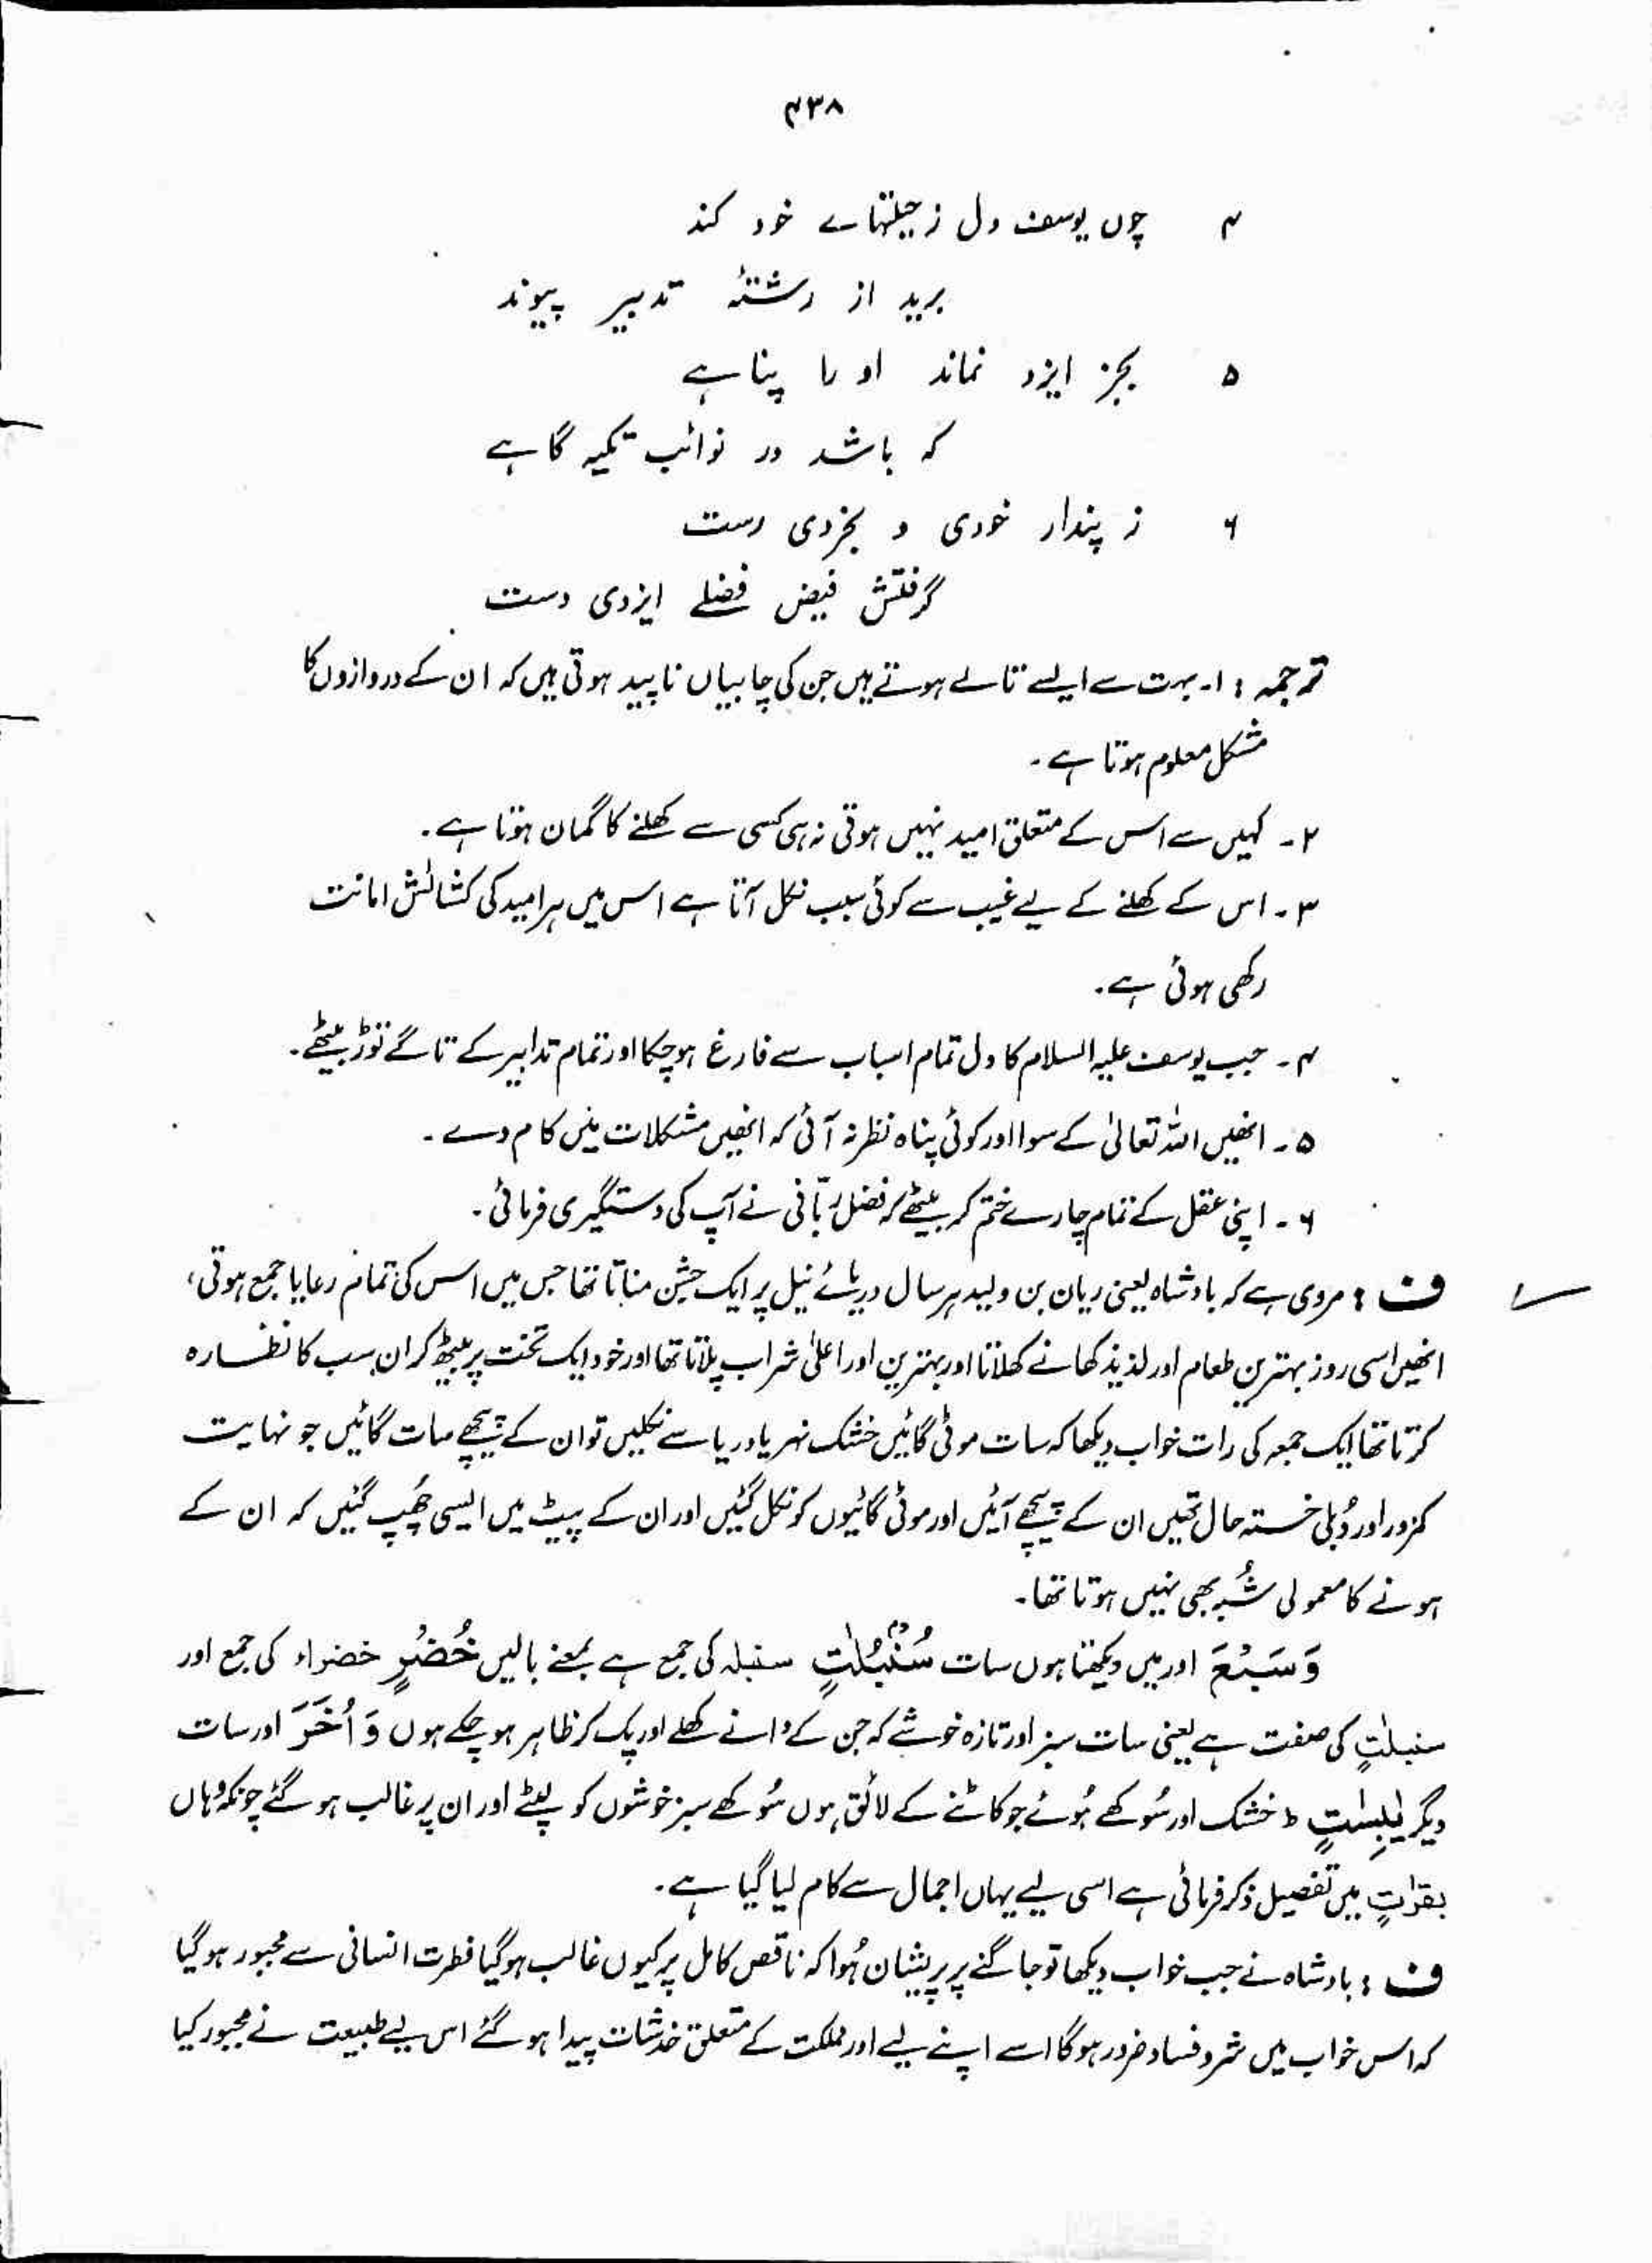 ۴۳۸
۴ چوں یوسف دل ز حیلتہاے خود کند
برید از رشتۂ تدبیر پیوند
۵ بجز ایزد نماند او را پناہے
کہ باشد در نوائب تکیہ گاہے
۶ ز پندار خودی و بخردی رست
گرفتش فیض فضلے ایزدی دست
ترجمہ : ۱۔ بہت سے ایسے تالے ہوتے ہیں جن کی چابیاں ناپید ہوتی ہیں کہ ان کے دروازوں کا
مشکل معلوم ہوتا ہے۔
۲۔ کہیں سے اس کے متعلق امید نہیں ہوتی نہ ہی کسی سے کھلنے کا گمان ہوتا ہے۔
۳۔ اس کے کھلنے کے لیے غیب سے کوئی سبب نکل آتا ہے اس میں ہر امید کی کشائش امانت
رکھی ہوئی ہے۔
۴۔ جب یوسف علیہ السلام کا دل تمام اسباب سے فارغ ہوچکا اور تمام تدابیر کے تاگے توڑ بیٹھے۔
۵۔ انھیں اللہ تعالیٰ کے سوا اور کوئی پناہ نظر نہ آئی کہ انھیں مشکلات میں کام دے۔
۶۔ اپنی عقل کے تمام چارے ختم کر بیٹھے کہ فضل ربّانی نے آپ کی دستگیری فرمائی۔
ف : مروی ہے کہ بادشاہ یعنی ریان بن ولید ہر سال دریائے نیل پر ایک جشن مناتا تھا جس میں اس کی تمام رعایا جمع ہوتی،
انھیں اسی روز بہترین طعام اور لذیذ کھانے کھلاتا اور بہترین اور اعلیٰ شراب پلاتا تھا اور خود ایک تخت پر بیٹھ کر ان سب کا نظارہ
کرتا تھا ایک جمعہ کی رات خواب دیکھا کہ سات موٹی گائیں خشک نہر یا دریا سے نکلیں تو ان کے پیچھے سات گائیں جو نہایت
کمزور اور دُبلی خستہ حال تھیں ان کے پیچھے آئیں اور موٹی گائیوں کو نگل گئیں اور ان کے پیٹ میں ایسی چھُپ گئیں کہ ان کے
ہونے کا معمولی شُبہ بھی نہیں ہوتا تھا۔
وَ سَبْعَ اور میں دیکھتا ہوں سات سُنْۢبُلٰتٍ سنبلہ کی جمع ہے بمعنے بالیں خُضْرٍ خضراء کی جمع اور
سنبلٰتٍ کی صفت ہے یعنی سات سبز اور تازہ خوشے کہ جن کے دانے کھلے اور پک کر ظاہر ہو چکے ہوں وَ اُخَرَ اور سات
دیگر یٰبِسٰتٍ ط خشک اور سُوکھے ہُوئے جو کاٹنے کے لائق ہوں سُوکھے سبز خوشوں کو لپٹے اور ان پر غالب ہو گئے چونکہ وُہاں
بقرٰتٍ میں تفصیل ذکر فرمائی ہے اسی لیے یہاں اجمال سے کام لیا گیا ہے۔
ف : بادشاہ نے جب خواب دیکھا تو جاگنے پر پریشان ہُوا کہ ناقص کامل پر کیوں غالب ہوگیا فطرت انسانی سے مجبور ہوگیا
کہ اس خواب میں شر و فساد ضرور ہوگا اسے اپنے لیے اور مملکت کے متعلق خدشات پیدا ہو گئے اس لیے طبیعت نے مجبور کیا